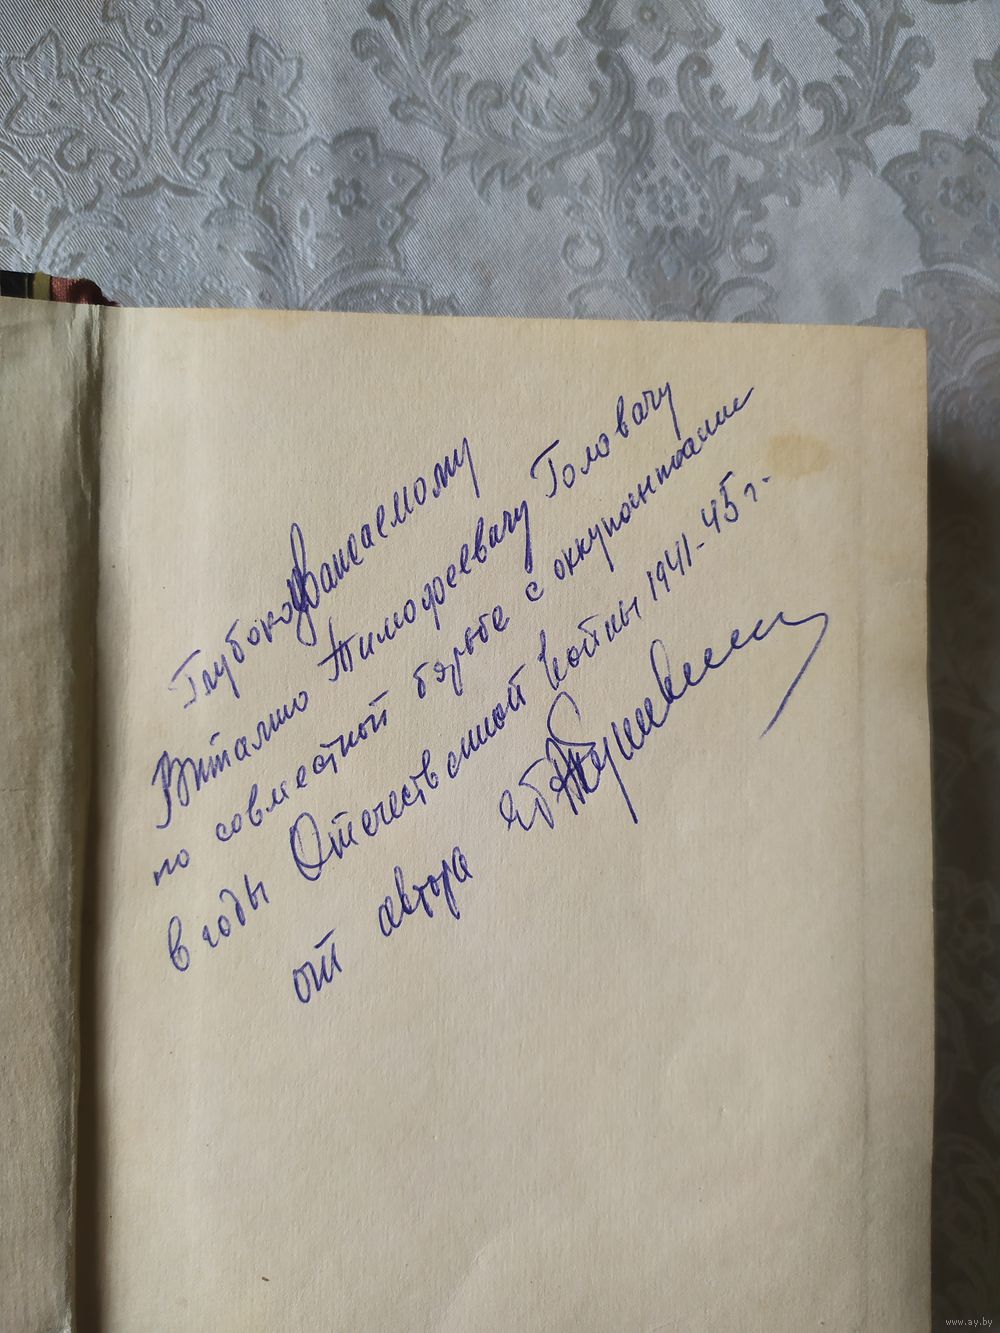 Глубокоуважаемому
Виталию Тимофеевичу Головачу
по совместной борьбе с оккупантами
в годы Отечественной войны 1941-45 г.
от автора
www.ay.by